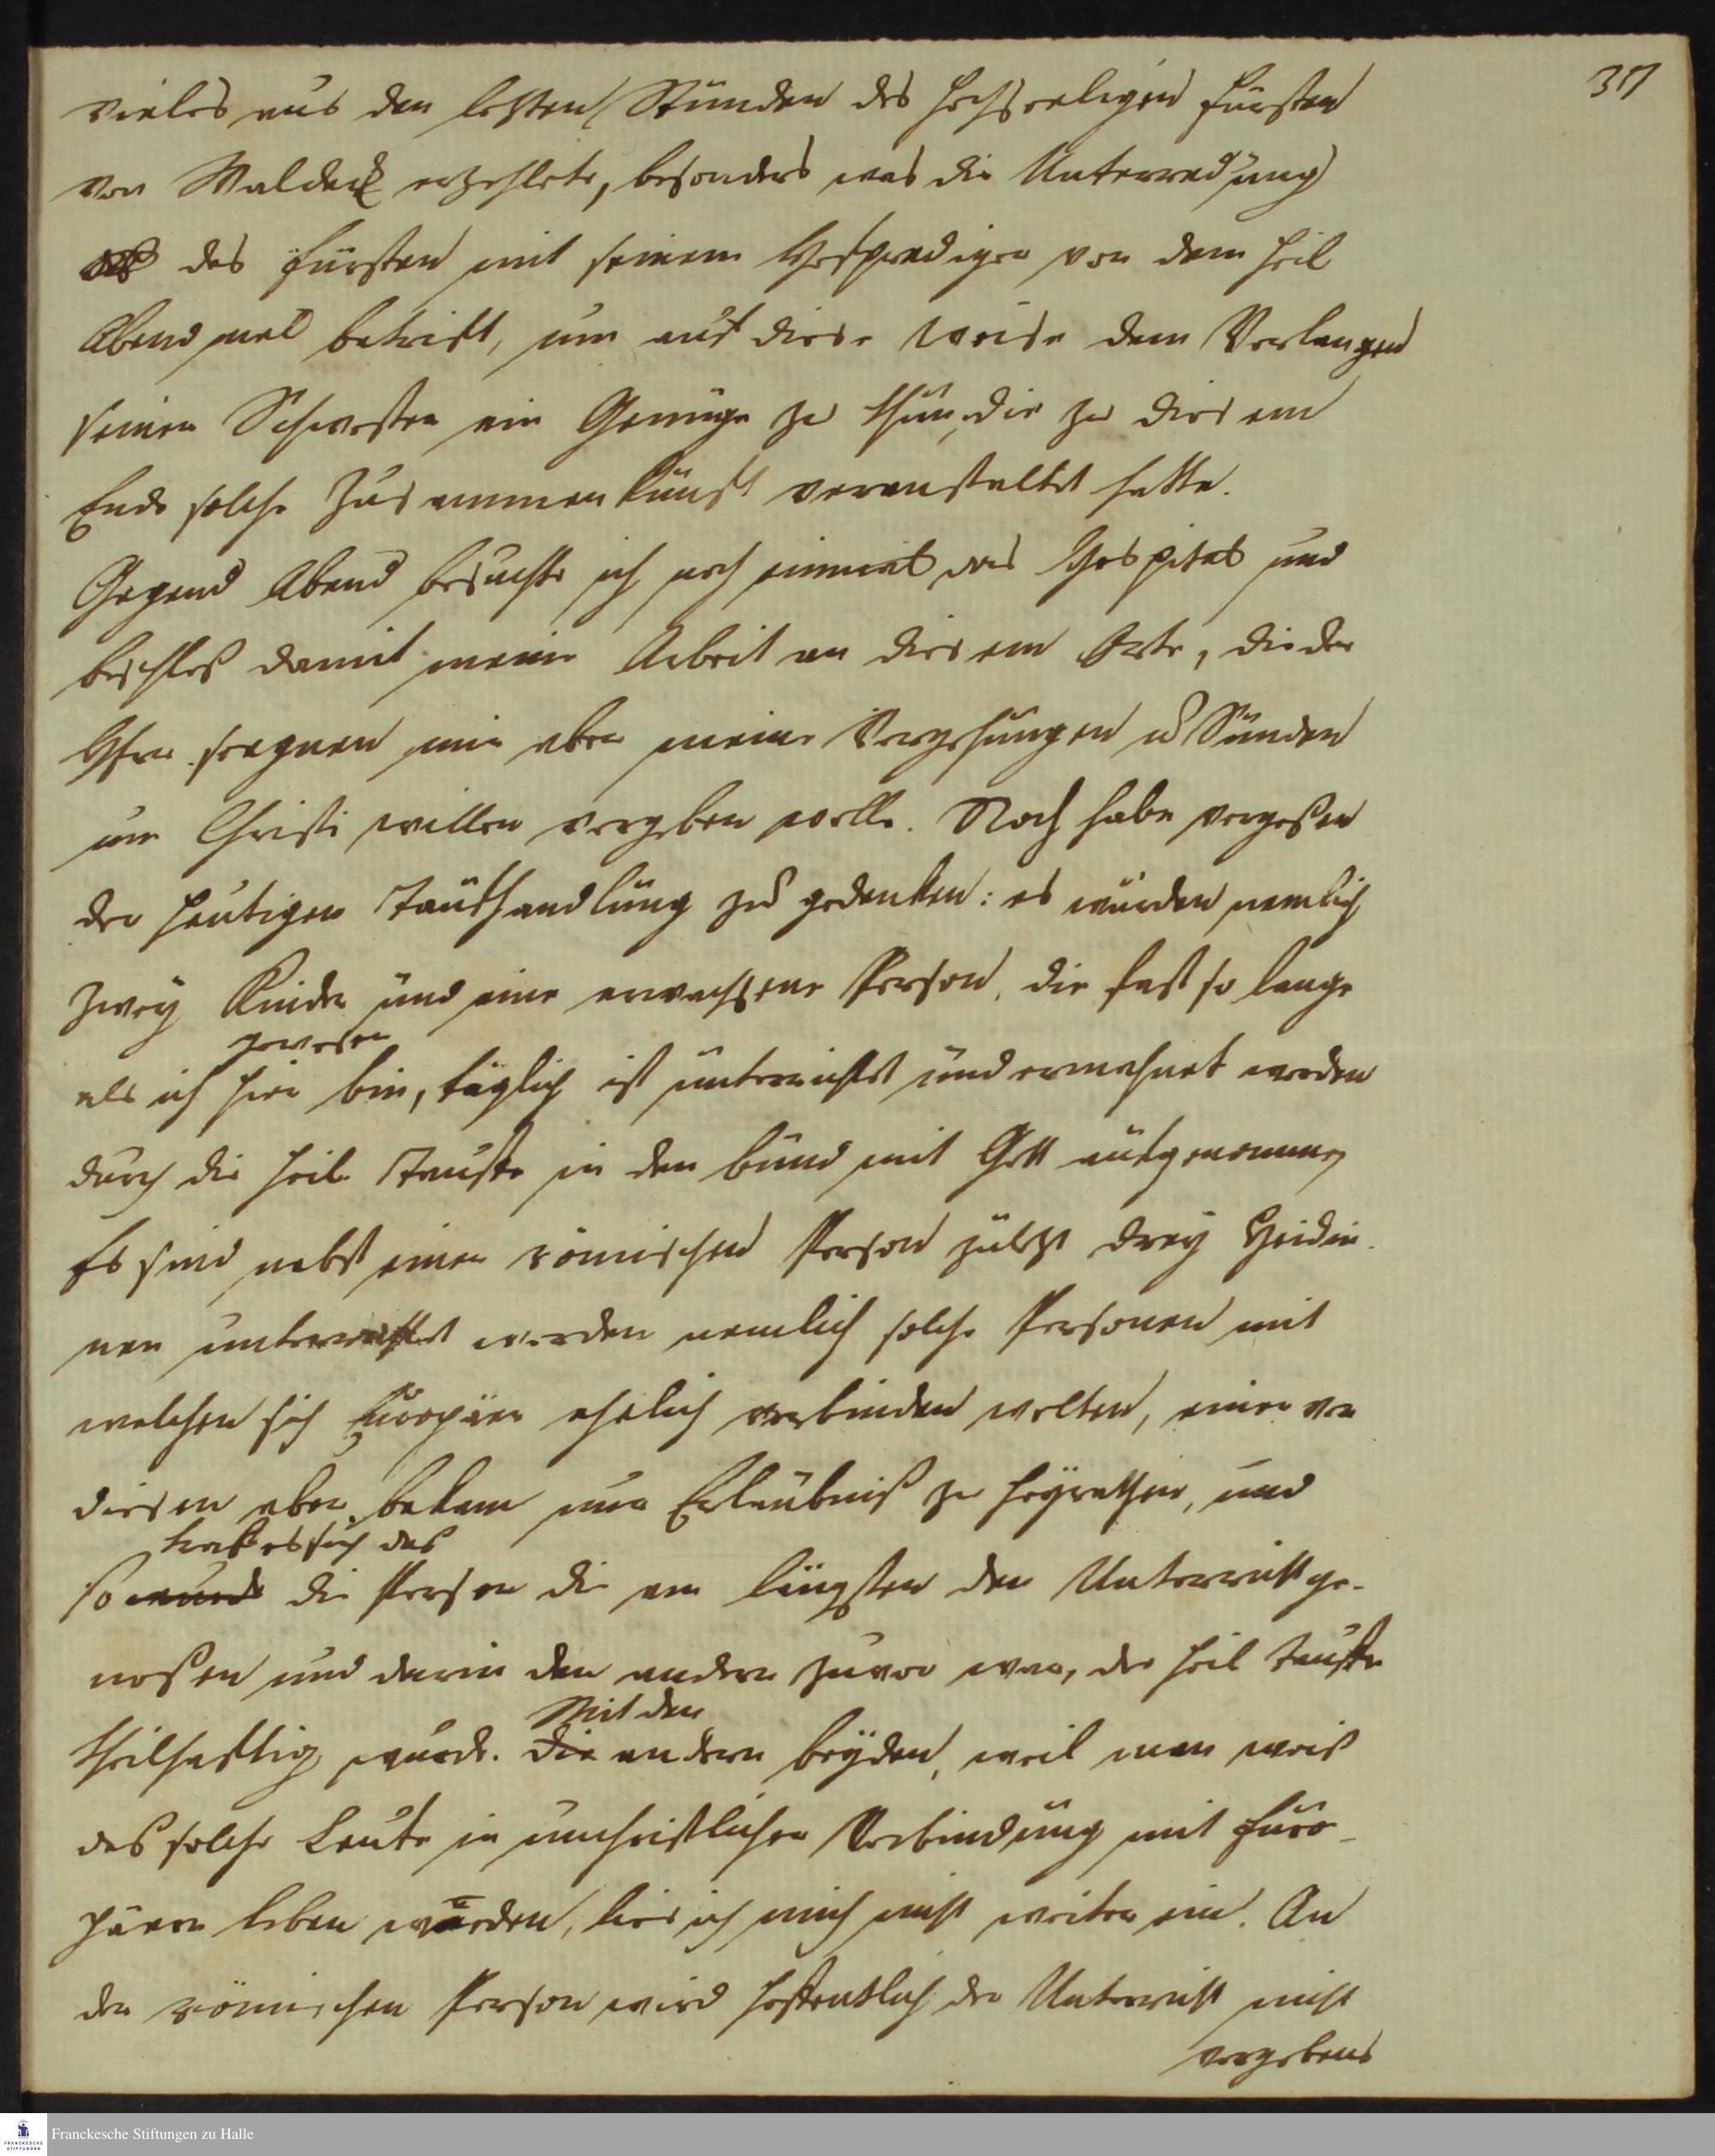 37
vieles aus den letzten Stunden des hochseeligen Fürsten
von Waldeck erzehlete, besonders was die Unterredung
des Fürsten mit seinem Hofprediger von dem heil
Abendmal betrift, um auf diese Weise dem Verlangen
seiner Schwester ein Genüge zu thun, die zu diesem
Ende solche Zusammenkunft veranstaltet hatte.
Gegend Abend besuchte ich noch einmal das Hospital und
beschloß damit meine Arbeit an diesem Orte, die der
Herr seegnen mir aber meine Vergehungen u Sünden
um Christi willen vergeben wolle. Noch habe vergeßen
der heutigen Taufhandlung zu gedenken: es wurden nemlich
zwey Kinder und eine erwachsene Person, die fast so lange
gewesen
als ich hier bin, täglich ist unterrichtet und ermahnet worden
durch die heil. Tauffe in den Bund mit Gott aufgenommen
Es sind nebst einer römischen Person zuletzt drey Heidin-
nen unterrichtet worden nemlich solche Personen mit
welchen sich Europäer ehelich verbinden wolten, einer von
diesen aber bekam nur Erlaubniß zu heyrathen, und
traf es sich das
so wurde die Person die am längsten den Unterricht ge-
noßen und darin den andern zuvor war, der heil Tauffe
Mit den
theilhafftig wurde. Die andern beyden, weil man weis
das solche Leute in unchristlicher Verbindung mit Euro-
päern leben würden, lies ich mich nicht weiter ein. An
der römischen Person wird hoffentlich der Unterricht nicht
vergebens
Franckesche Stiftungen zu Halle